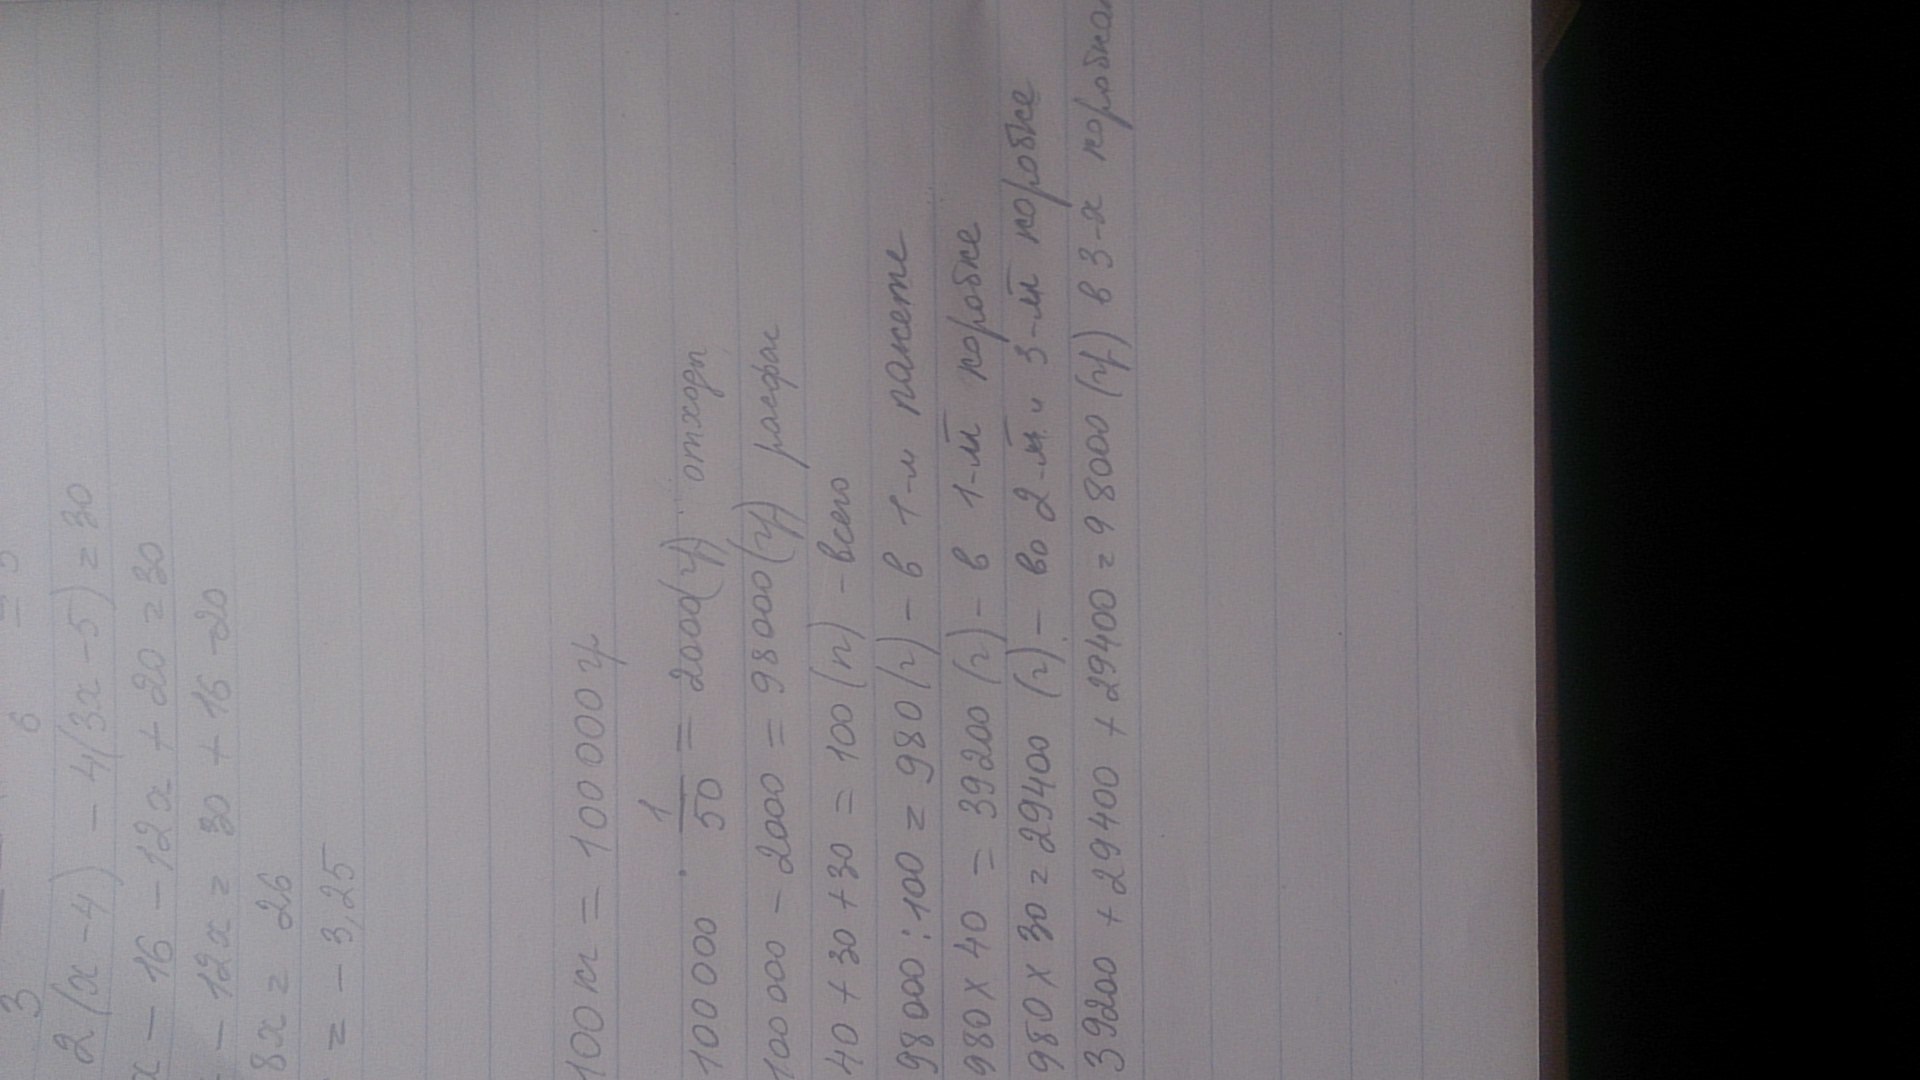 3 6 = 5
2(x-4) - 4(3x-5) = 30
x - 16 - 12x + 20 = 30
- 12x = 30 + 16 - 20
8x = 26
= - 3,25
100 кг = 100 000 гр
100 000 · 1/50 = 2000 (гр) отходы
100 000 - 2000 = 98 000 (гр) расфас
40 + 30 + 30 = 100 (п) - всего
98 000 : 100 = 980 (г) - в 1-м пакете
980 x 40 = 39200 (г) - в 1-й коробке
980 x 30 = 29400 (г) - во 2-й и 3-й коробке
39200 + 29400 + 29400 = 98000 (гр) в 3-х